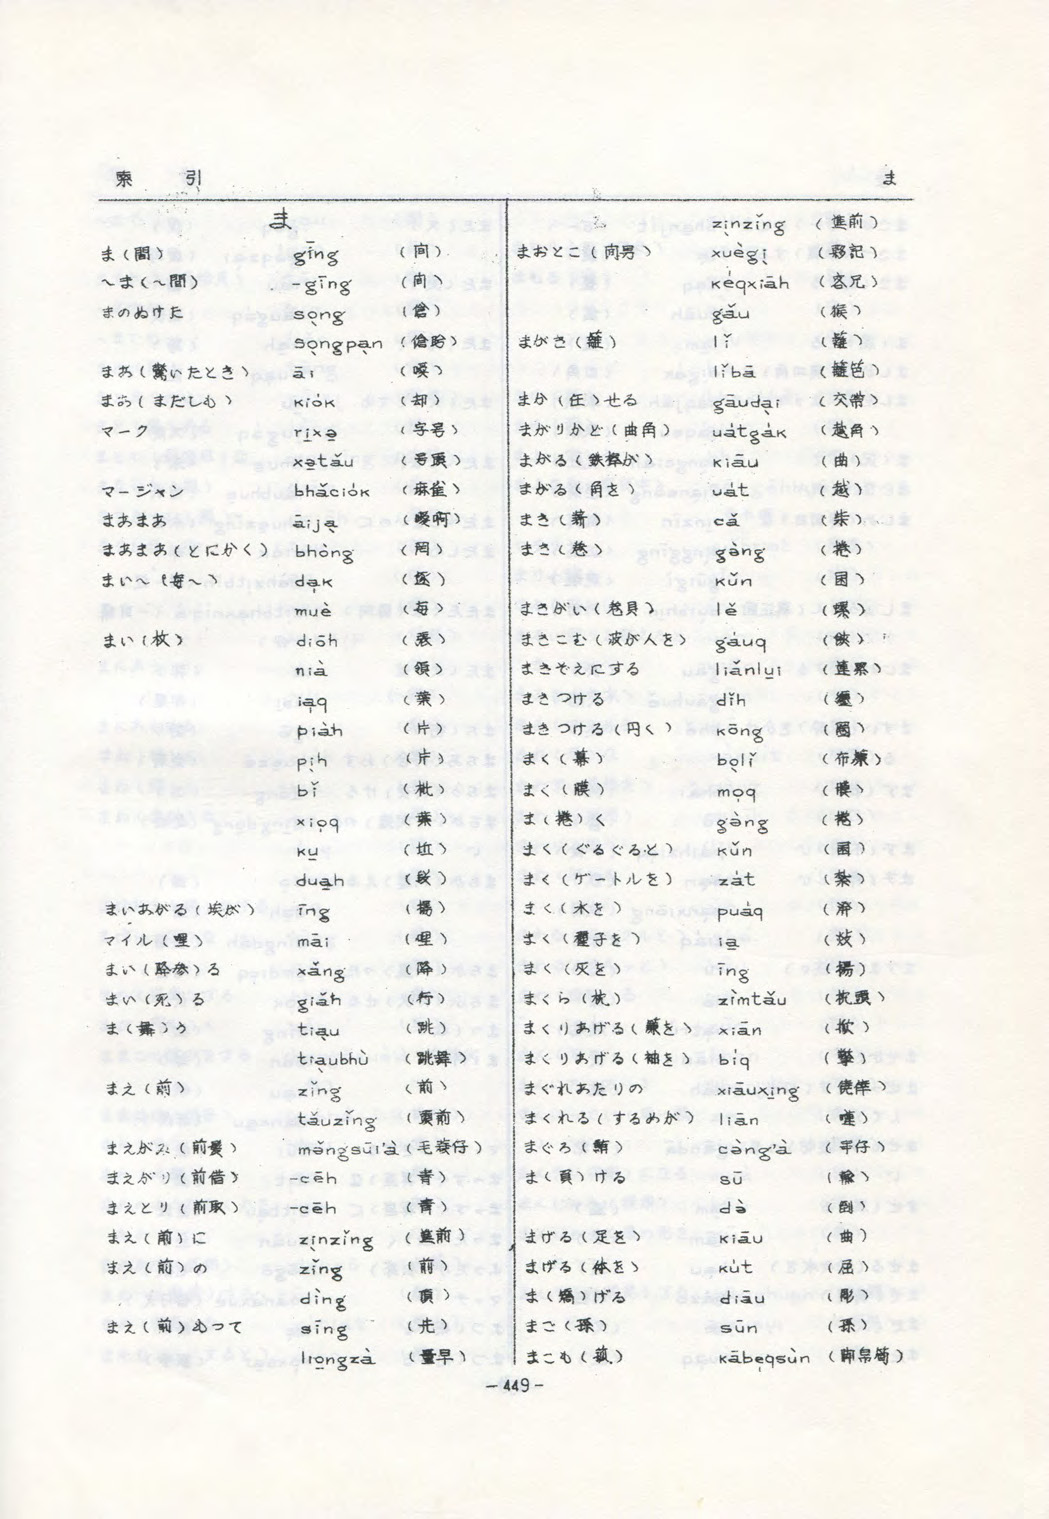 索 引 ま
ま
ま(間) gīng (间)
～ま(～間) -gīng (间)
まのぬけた sọng (傖)
sọngpạn (傖盼)
まあ(驚いたとき) āi (噯)
まあ(まだしも) kiók (却)
マーク ri̱xə̱ (字号)
xə̱tǎu (号頭)
マージャン bhǎciók (麻雀)
まあまあ āija̱ (噯啊)
まあまあ(とにかく) bhòng (罔)
まい～(毎～) da̱k (逐)
muè (每)
まい(枚) diōh (張)
nià (領)
ia̱q (葉)
piàh (片)
pi̱h (片)
bǐ (枇)
xio̱q (葉)
ku̱ (坵)
dua̱h (段)
まいあがる(埃が) īng (揚)
マイル(哩) māi (哩)
まい(降参)る xǎng (降)
まい(死)る giǎh (行)
ま(舞)う tia̱u (跳)
tia̱ubhù (跳舞)
まえ(前) zǐng (前)
tǎuzǐng (頭前)
まえがみ(前髪) mǒngsūi'à (毛蓑仔)
まえがり(前借) -cēh (青)
まえどり(前取) -cēh (青)
まえ(前)に zi̱nzǐng (進前)
まえ(前)の zǐng (前)
dìng (頂)
まえ(前)もって sīng (先)
lio̱ngzà (量早)
zi̱nzǐng (進前)
まおとこ(间男) xuègi̱ (夥記)
kéqxiāh (客兄)
gǎu (猴)
まがき(籬) lǐ (籬)
lǐbā (籬笆)
まか(任)せる gāuda̱i (交帶)
まがりかど(曲角) uátgák (越角)
まがる(鉄棒が) kiāu (曲)
まがる(角を) uát (越)
まき(薪) cá (柴)
まき(巻) gə̀ng (捲)
kǔn (囷)
まきがい(巻貝) lě (螺)
まきこむ(波が人を) gáuq (侠)
まきぞえにする liǎnlu̱i (連累)
まきつける dǐh (纏)
まきつける(円く) kōng (圈)
まく(幕) bo̱lǐ (布簾)
まく(膜) mo̱q (膜)
ま(捲)く gə̀ng (捲)
まく(ぐるぐると) kǔn (囷)
まく(ゲートルを) zát (紮)
まく(水を) puáq (潑)
まく(種子を) ia̱ (敥)
まく(灰を) īng (揚)
まくら(枕) zìmtǎu (枕頭)
まくりあげる(簾を) xiān (掀)
まくりあげる(袖を) bíq (擎)
まぐれあたりの xiāuxi̱ng (僥倖)
まくれる(するめが) liān
まぐろ(鮪) càng'à (串仔)
ま(負)ける sū (輸)
də̀ (倒)
まげる(足を) kiāu (曲)
まげる(体を) kút (屈)
ま(矯)げる diāu (彫)
まご(孫) sūn (孫)
まこも(菰) kābe̱qsùn (脚帛筍)
- 449 -